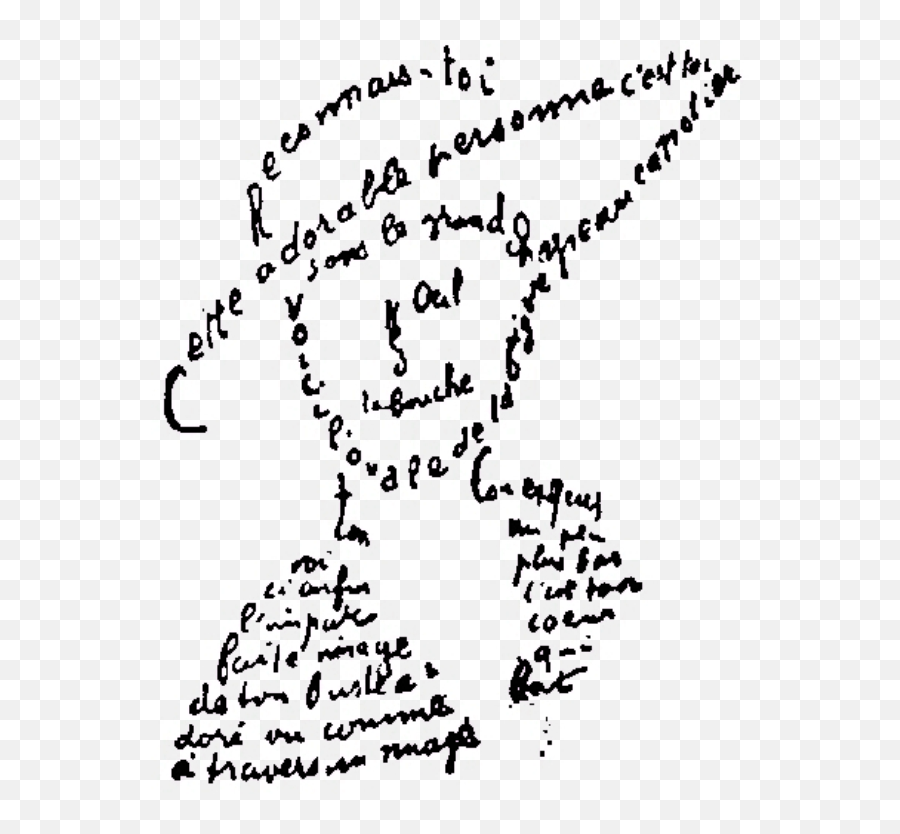 Reconnais-toi
Cette adorable personne c'est toi
sous le grand chapeau canotier
Oeil
Nez
la bouche
Voici l'ovale de la figure
Ton
Cou exquis
voi
ci enfin
l'impar
faite image
de ton buste a
doré vu comme
à travers un nuage
un peu
plus bas
c'est ton
coeur
qui
bat